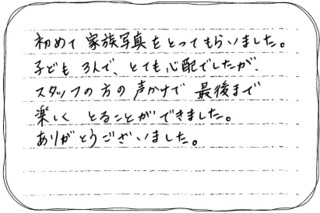 初めて家族写真をとってもらいました。
子ども3人で、とても心配でしたが、
スタッフの方の声かけで最後まで
楽しくとることができました。
ありがとうございました。